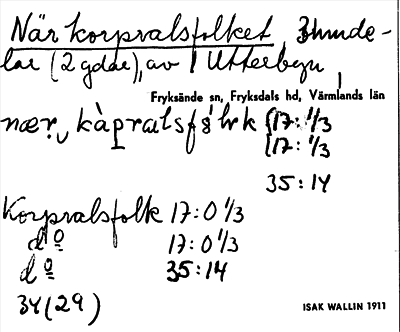 När korpvalsfolket, 3 hunde-
lar (2 gdar), av i Utterbyn
Fryksände sn, Fryksdals hd, Värmlands län
[17: 1/3
[17: 1/3
35:14
Korpvalsfolk 17:0 1/3
do 17:0 1/3
do 35:14
34 (29)
ISAK WALLIN 1911